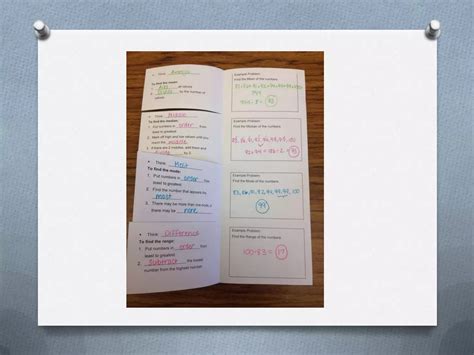 Think: Average
To find the mean:
1. Add all values
2. Divide by the number of values
Example Problem:
Find the Mean of the numbers.
Think: Middle
To find the median:
1. Put numbers in order from least to greatest
2. Mark off high and low values until you reach the middle
3. If there are 2 middles, add them and
by 2
Example Problem:
Find the Median of the numbers.
Think: Most
To find the mode:
1. Put numbers in order from least to greatest
2. Find the number that appears the most
3. There may be more than one mode, or there may be none
Example Problem:
Find the Mode of the numbers.
99
Think: Difference
To find the range:
1. Put numbers in order from least to greatest
2. Subtract the lowest number from the highest number
Example Problem:
Find the Range of the numbers.
100-83 = 17